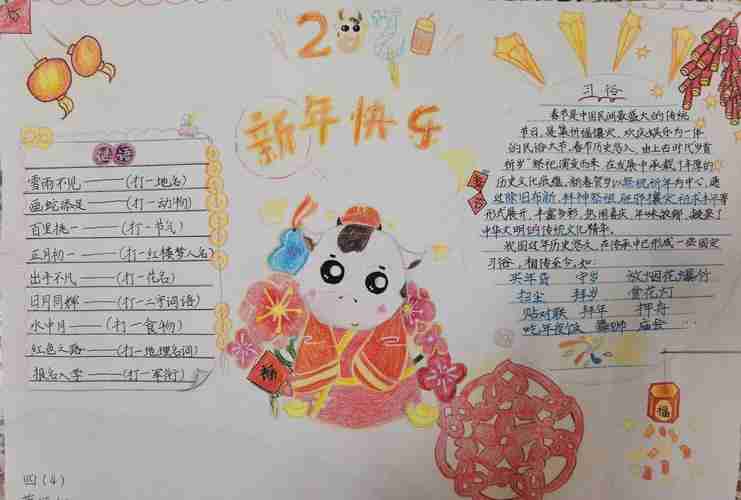 202
新年快乐
谜语
雪雨不见——(打一地名)
画蛇添足——(打一动物)
百里挑一——(打一节气)
正月初一——(打一红楼梦人名)
出手不凡——(打一花名)
日月同辉——(打一二字词语)
水中月——(打一食物)
红色之路——(打一地理名词)
报名入学——(打一军衔)
四(4)
福
习俗
春节是中国民间最盛大的传统
节日,是集祈福攘灾、欢庆娱乐为一体
的民俗大节。春节历史悠久,由上古时代岁首
祈岁祭祀演变而来,在发展中承载了丰厚的
历史文化底蕴。新春贺岁以祭祝祈年为中心,通
过除旧布新、拜神祭祖、驱邪攘灾
形式展开,丰富多彩,热闹喜庆,年味浓郁,凝聚了
中华文明的传统文化精华。
我国过年历史悠久,在传承中已形成一些固定
习俗,相传至今,如:
买年货 守岁 放烟花爆竹
扫尘 拜岁 赏花灯
贴对联 拜年 押舟
吃年夜饭 舞狮 庙会
福